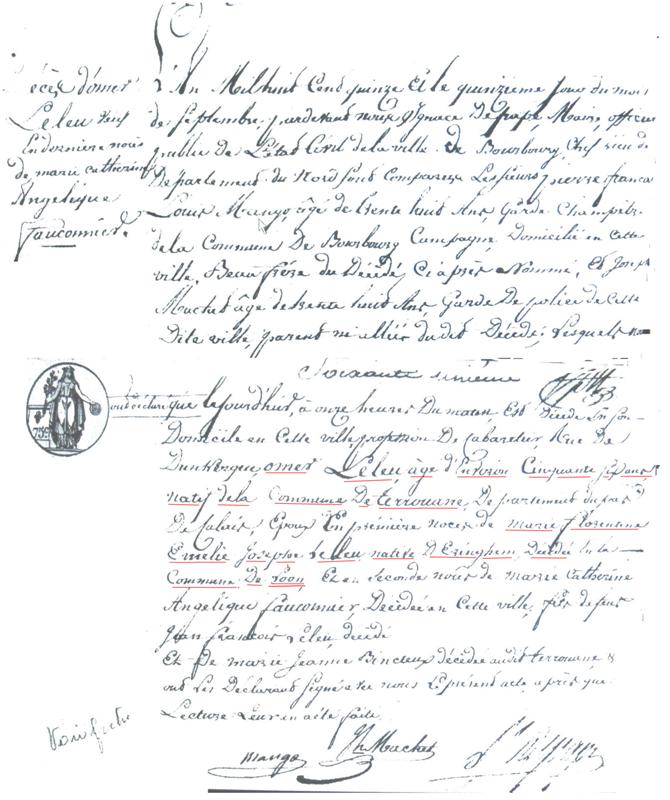 écès d'omer
Leleu veuf
En dernière nois
de marie catherine
Angelique
fauconnier
L'An Mil huit Cend quinze Et le quinzieme Jour du mois
de Septembre, pardevand nous Ignace Maire, officier
publie De L'Etat Civil de la ville de Bourbourg, Chef Lieu de
Departement du Nord sond Comparus Les sieurs pierre francoi
Louis Mango, âgé de trente huit Ans, Garde Champêtre
de la Commune De Bourbourg Campagne, Domicilié en cette
ville, Beau frère du Décédé, Ci après Nommé, Et Joseph
Machet âgé de trente huit Ans, Garde De police de Cette
Dite ville, parent ni alliés du dit Décédé; Lesquels
Soixante unieme
ont déclaré que le jourd'hui, à onze heures Du maten, Est Décédé En son
Domicile en Cette ville, profession De Cabaretier Rue De
Dunkerque, omer Leleu, âgé d'Environ Cinquante sept ans,
natif de la Commune De terrouane, Departement du pas
De Calais, Epoux En première noces de marie florentine
Emelie Josephe Leleu native D'Ezinghem, Décédée en la
Commune De Loon, Et en secondes nois de marie Catherine
Angelique fauconnier, Décédée en Cette ville, fils de feus
Jean francois Leleu, décédé
Et De marie Jeanne Bincteux décédée audit terrouane &
ond Les Déclarans signé avec nous Le présent acte, après que
Lecture Leur en a été faite.
mango
Machet